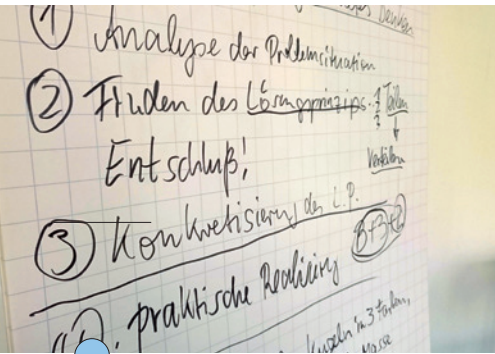 Denken
① Analyse der Problemsituation
② Finden des Lösungsprinzips
Teilen
Entschluß!
③ Konkretisierung des L.P.
praktische Realisierung
Kugeln in 3 Farben,
Masse